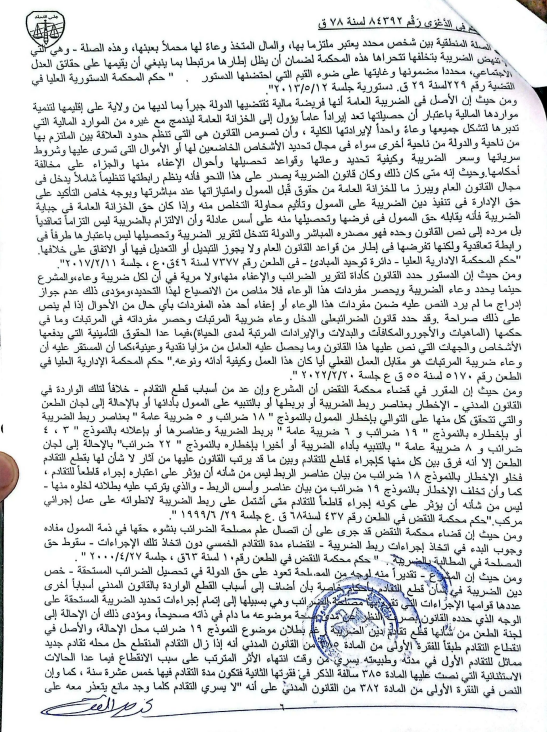 حكم فى الدعوى رقم ٨٤٣٩٢ لسنة ٧٨ ق
الصلة المنطقية بين شخص محدد يعتبر ملتزما بها، والمال المتخذ وعاءً لها محملاً بعبئها، وهذه الصلة - وهي التي
تنهض الضريبة بتخلفها تتحراها هذه المحكمة لضمان أن يظل إطارها مرتبطا بما ينبغي أن يقيمها على حقائق العدل
الاجتماعي، محددا مضمونها وغايتها على ضوء القيم التي احتضنها الدستور . " حكم المحكمة الدستورية العليا في
القضية رقم ٢٢٩ لسنة ٢٩ ق. دستورية جلسة ٢٠١٣/٥/١٢".
ومن حيث إن الأصل فى الضريبة العامة أنها فريضة مالية تقتضيها الدولة جبراً بما لديها من ولاية على إقليمها لتنمية
مواردها المالية باعتبار أن حصيلتها تعد إيراداً عاماً يؤول إلى الخزانة العامة ليندمج مع غيره من الموارد المالية التي
تدبرها لتشكل جميعها وعاءً واحداً لإيراداتها الكلية ، وأن نصوص القانون هى التى تنظم حدود العلاقة بين الملتزم بها
من ناحية والدولة من ناحية أخرى سواء فى مجال تحديد الأشخاص الخاضعين لها أو الأموال التى تسرى عليها وشروط
سريانها وسعر الضريبة وكيفية تحديد وعائها وقواعد تحصيلها وأحوال الإعفاء منها والجزاء على مخالفة
أحكامها.وحيث إنه متى كان ذلك وكان قانون الضريبة يصدر على هذا النحو فأنه ينظم رابطتها تنظيماً شاملاً يدخل فى
مجال القانون العام ويبرز ما للخزانة العامة من حقوق قبل الممول وامتيازاتها عند مباشرتها وبوجه خاص التأكيد على
حق الإدارة فى تنفيذ دين الضريبة على الممول وتأثيم محاولة التخلص منه وإذا كان حق الخزانة العامة فى جباية
الضريبة فأنه يقابله حق الممول فى فرضها وتحصيلها منه على أسس عادلة وأن الالتزام بالضريبة ليس التزاماً تعاقدياً
بل مرده إلى نص القانون وحده فهو مصدره المباشر والدولة تتدخل لتقرير الضريبة وتحصيلها ليس باعتبارها طرفاً فى
رابطة تعاقدية ولكنها تفرضها فى إطار من قواعد القانون العام ولا يجوز التبديل أو التعديل فيها أو الاتفاق على خلافها.
"حكم المحكمة الإدارية العليا - دائرة توحيد المبادئ - فى الطعن رقم ٧٣٧٧ لسنة ٤٦ق.ع ، جلسة ٢٠١٧/٢/١١".
ومن حيث إن الدستور حدد القانون كأداة لتقرير الضرائب والإعفاء منها،ولا مرية في أن لكل ضريبة وعاء،والمشرع
حينما يحدد وعاء الضريبة ويحصر مفردات هذا الوعاء فلا مناص من الانصياع لهذا التحديد،ومؤدى ذلك عدم جواز
إدراج ما لم يرد النص عليه ضمن مفردات هذا الوعاء أو إعفاء أحد هذه المفردات بأي حال من الأحوال إذا لم ينص
على ذلك صراحة .وقد حدد قانون الضرائب على الدخل وعاء ضريبة المرتبات وحصر مفرداته في المرتبات وما في
حكمها (الماهيات والأجور والمكافآت والبدلات والإيرادات المرتبة لمدى الحياة)،فيما عدا الحقوق التأمينية التي يدفعها
الأشخاص والجهات التي نص عليها هذا القانون وما يحصل عليه العامل من مزايا نقدية وعينية،كما أن المستقر عليه أن
وعاء ضريبة المرتبات هو مقابل العمل الفعلي أيا كان هذا العمل وكيفية أدائه ونوعه." حكم المحكمة الإدارية العليا في
الطعن رقم ٥١٧٠ لسنة ٥٥ ق ع جلسة ٢٠٢٢/٢/٢٠".
ومن حيث إن المقرر في قضاء محكمة النقض أن المشرع وإن عد من أسباب قطع التقادم - خلافاً لتلك الواردة في
القانون المدني - الإخطار بعناصر ربط الضريبة أو بربطها أو بالتنبيه على الممول بأدائها أو بالإحالة إلى لجان الطعن
والتي تتحقق كل منها على التوالي بإخطار الممول بالنموذج " ١٨ ضرائب و ٥ ضريبة عامة " بعناصر ربط الضريبة
أو بإخطاره بالنموذج " ١٩ ضرائب و ٦ ضريبة عامة " بربط الضريبة وعناصرها أو بإعلانه بالنموذج " ٣ ، ٤
ضرائب و ٨ ضريبة عامة " بالتنبيه بأداء الضريبة أو أخيرا بإخطاره بالنموذج " ٢٢ ضرائب" بالإحالة إلى لجان
الطعن إلا أنه فرق بين كل منها كإجراء قاطع للتقادم وبين ما قد يرتب القانون عليها من آثار لا شأن لها بقطع التقادم
فخلو الإخطار بالنموذج ١٨ ضرائب من بيان عناصر الربط ليس من شأنه أن يؤثر على اعتباره إجراء قاطعاً للتقادم ،
كما وأن تخلف الإخطار بالنموذج ١٩ ضرائب من بيان عناصر وأسس الربط - والذي يترتب عليه بطلانه لخلوه منها -
ليس من شأنه أن يؤثر على كونه إجراء قاطعاً للتقادم متى أشتمل على ربط الضريبة لانطوائه على عمل إجرائي
مركب."حكم محكمة النقض في الطعن رقم ٤٣٧ لسنة ٦٨ ق .ع جلسة ١٩٩٩/٦/٢٩".
ومن حيث إن قضاء محكمة النقض قد جرى على أن اتصال علم مصلحة الضرائب بنشوء حقها في ذمة الممول مفاده
وجوب البدء في اتخاذ إجراءات ربط الضريبة - انقضاء مدة التقادم الخمسي دون اتخاذ تلك الإجراءات - سقوط حق
المصلحة في المطالبة بالضريبة " حكم محكمة النقض في الطعن رقم ١٠ لسنة ٦٣ق ، جلسة ٢٠٠٠/٤/٢٧ ".
ومن حيث إن المشرع - تقديراً منه لوجه من المصلحة تعود على حق الدولة في تحصيل الضرائب المستحقة - خص
دين الضريبة في شأن قطع التقادم بأحكام خاصة بأن أضاف إلى أسباب القطع الواردة بالقانون المدني أسباباً أخرى
عددها قوامها الإجراءات التي تقوم بها مصلحة الضرائب وهي بسبيلها إلى إتمام إجراءات تحديد الضريبة المستحقة على
الوجه الذي حدده القانون بصرف النظر عن موضوعه ما دام في ذاته صحيحاً، ومؤدى ذلك أن الإحالة إلى
لجنة الطعن من شأنها قطع تقادم دين الضريبة رغم بطلان موضوع النموذج ١٩ ضرائب محل الإحالة، والأصل في
انقطاع التقادم طبقاً للفقرة الأولى من المادة ٣٨٥ من القانون المدني أنه إذا زال التقادم المنقطع حل محله تقادم جديد
مماثل للتقادم الأول في مدته وطبيعته يسري من وقت انتهاء الأثر المترتب على سبب الانقطاع فيما عدا الحالات
الاستثنائية التي نصت عليها المادة ٣٨٥ سالفة الذكر في فقرتها الثانية فتكون مدة التقادم فيها خمس عشرة سنة ، كما وإن
النص في الفقرة الأولى من المادة ٣٨٢ من القانون المدني على أنه "لا يسري التقادم كلما وجد مانع يتعذر معه على
٦